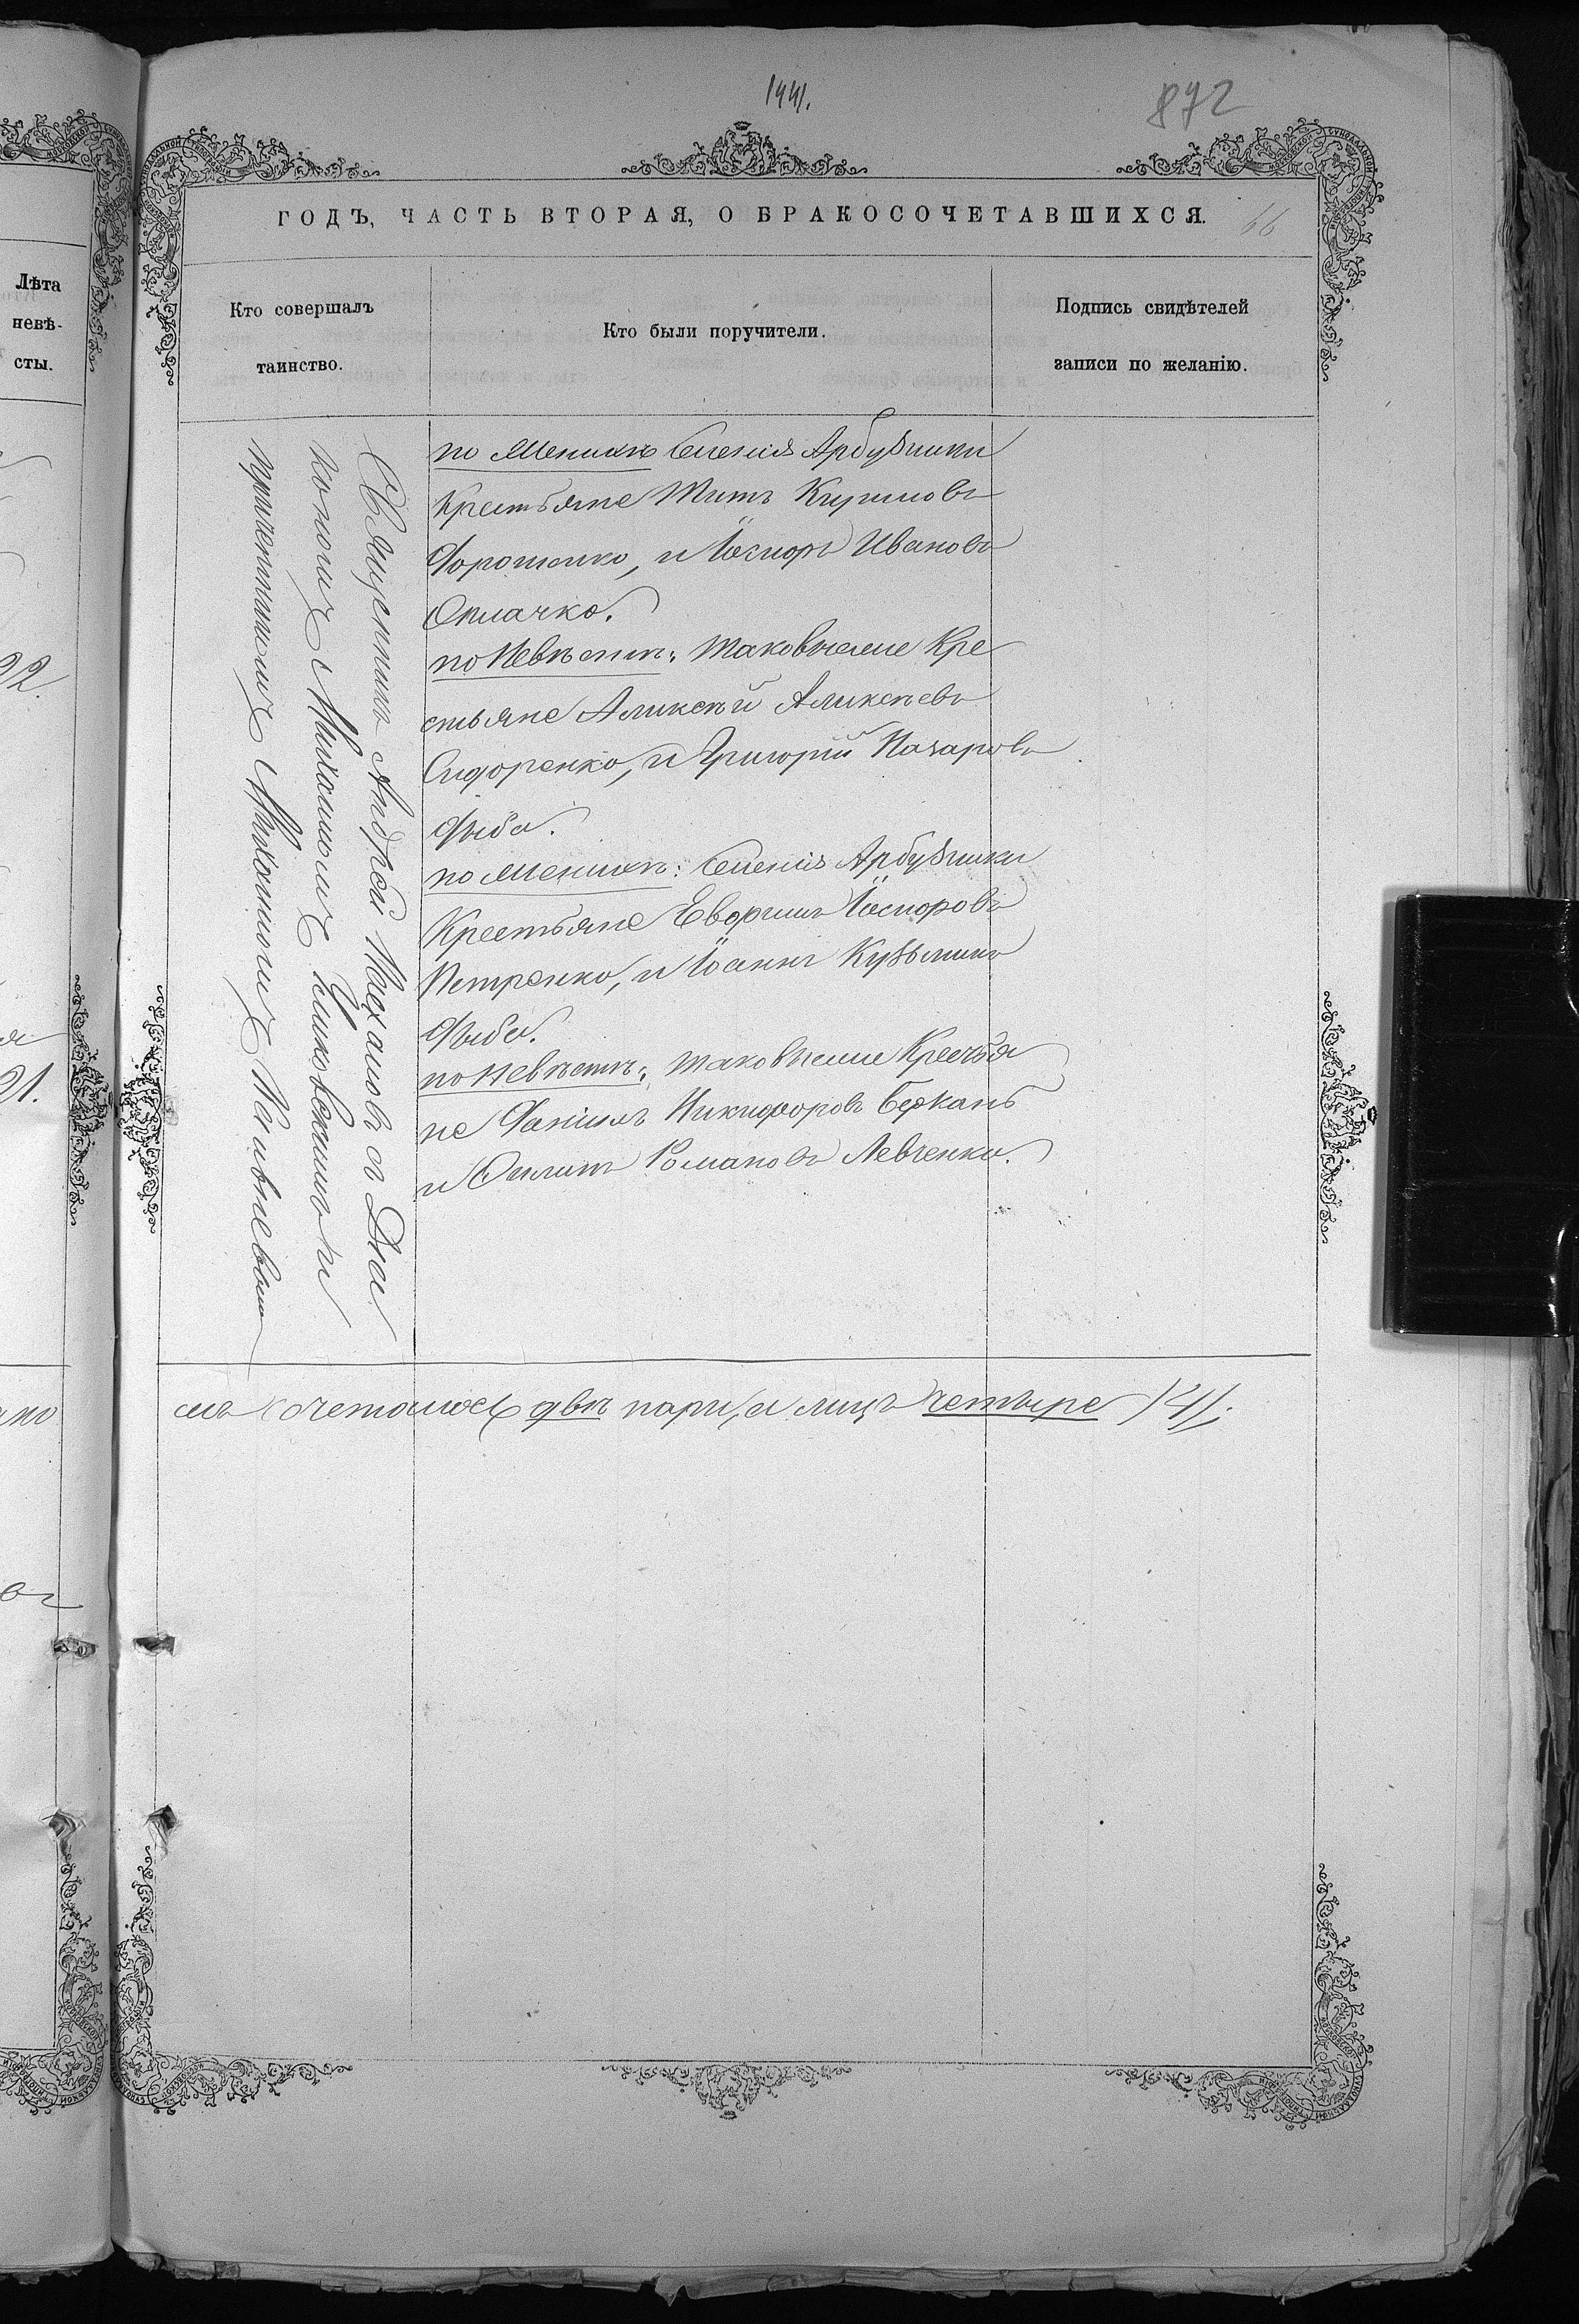 1441.
872
ГОДЪ, ЧАСТЬ ВТОРАЯ, О БРАКОСОЧЕТАВШИХСЯ.
66
Лѣта
невѣ-
сты.
22.
21.
Кто совершалъ
таинство.
Кто были поручители.
Подпись свидѣтелей
записи по желанію.
Священникъ Андрей Михалевъ с Діа
кономъ Михаиломъ и
Михаиломъ
по Женихѣ Селенія Арбузинки
Крестьяне Титъ Кириловъ
Дорошенко, и Іосифъ Ивановъ
Оплачко.
по Невѣстѣ: таковыеже Кре
стьяне Аликсѣй Аликсѣевъ
Сидоренко, и Григорій Назаровъ
Дыба.
по Женихѣ: Селенія Арбузинки
Крестьяне Іосифовъ
Петренко, и Іоаннъ Кузьминъ
Дыба.
по Невѣстѣ: таковыеже Крестья
не Даніилъ Никифоровъ
и Филипъ Романовъ Левченко.
мъ сочеталось двѣ пари, а лицъ четыре /4/.